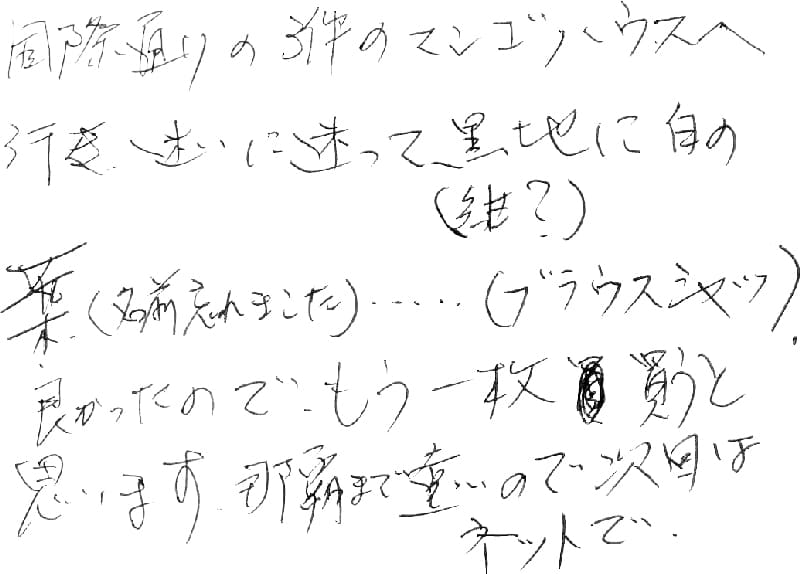 国際通りの3件のマンゴハウスへ
行き、迷いに迷って、黒地に白の
(紺?)
葉(名前忘れました)……(ブラウスシャツ).
良かったので、もう一枚 買うと
思います。那覇まで遠いので次回は
ネットで.